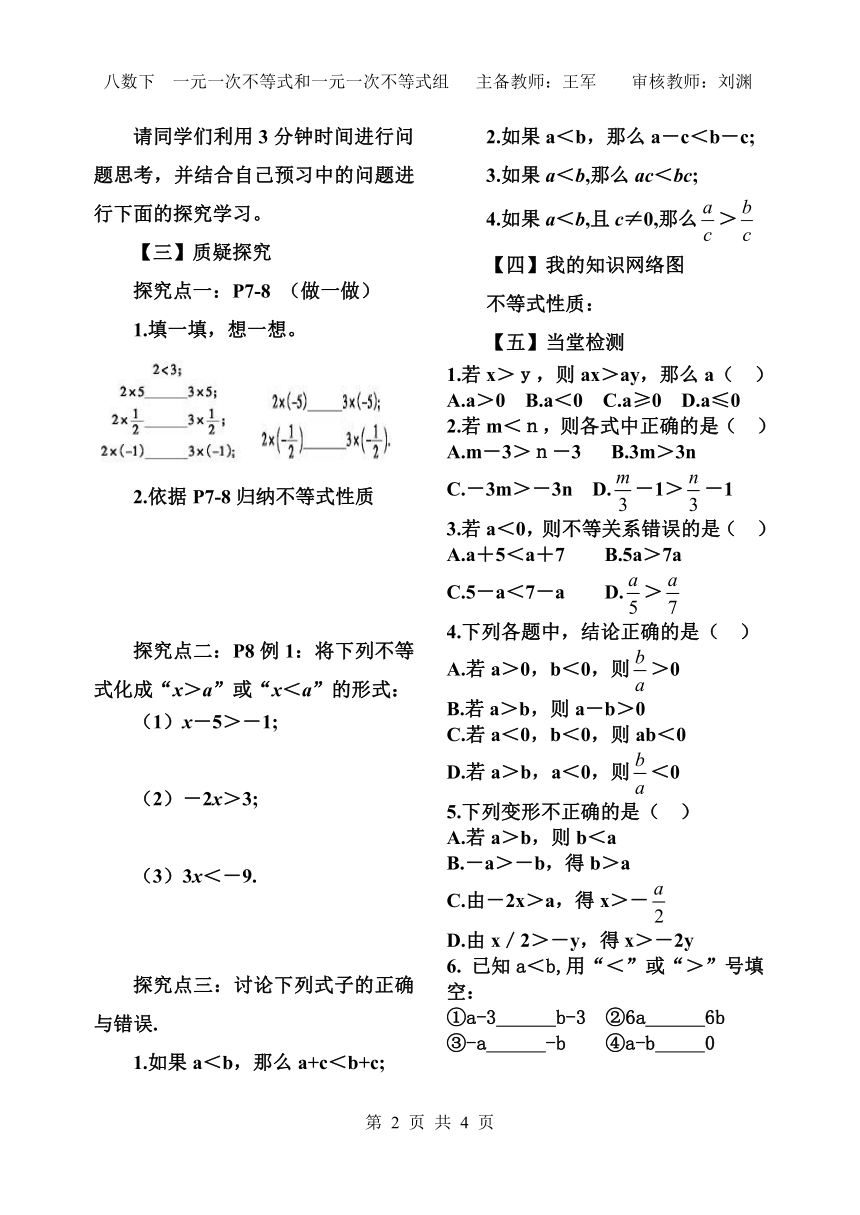 八数下 一元一次不等式和一元一次不等式组 主备教师：王军 审核教师：刘渊
请同学们利用 3 分钟时间进行问
题思考，并结合自己预习中的问题进
行下面的探究学习。
【三】质疑探究
探究点一：P7-8 （做一做）
1.填一填，想一想。
2<3;
2×5_____3×5;
2×1/2_____3×1/2;
2×(-1)_____3×(-1);
2×(-5)____3×(-5);
2×(-1/2)____3×(-1/2).
2.依据 P7-8 归纳不等式性质
探究点二：P8 例 1：将下列不等
式化成“x＞a”或“x＜a”的形式：
（1）x－5＞－1;
（2）－2x＞3;
（3）3x＜－9.
探究点三：讨论下列式子的正确
与错误.
1.如果 a＜b，那么 a+c＜b+c;
2.如果 a＜b，那么 a－c＜b－c;
3.如果 a＜b,那么 ac＜bc;
4.如果 a＜b,且 c≠0,那么 a/c＞b/c
【四】我的知识网络图
不等式性质：
【五】当堂检测
1.若 x＞y，则 ax＞ay，那么 a（ ）
A.a＞0 B.a＜0 C.a≥0 D.a≤0
2.若 m＜n，则各式中正确的是（ ）
A.m－3＞n－3 B.3m＞3n
C.－3m＞－3n D.m/3－1＞n/3－1
3.若 a＜0，则不等关系错误的是（ ）
A.a＋5＜a＋7 B.5a＞7a
C.5－a＜7－a D.a/5＞a/7
4.下列各题中，结论正确的是（ ）
A.若 a＞0，b＜0，则 b/a＞0
B.若 a＞b，则 a－b＞0
C.若 a＜0，b＜0，则 ab＜0
D.若 a＞b，a＜0，则 b/a＜0
5.下列变形不正确的是（ ）
A.若 a＞b，则 b＜a
B.－a＞－b，得 b＞a
C.由－2x＞a，得 x＞－a/2
D.由 x／2＞－y，得 x＞－2y
6. 已知 a＜b,用“＜”或“＞”号填
空：
①a-3______b-3 ②6a______6b
③-a______-b ④a-b_____0
第 2 页 共 4 页